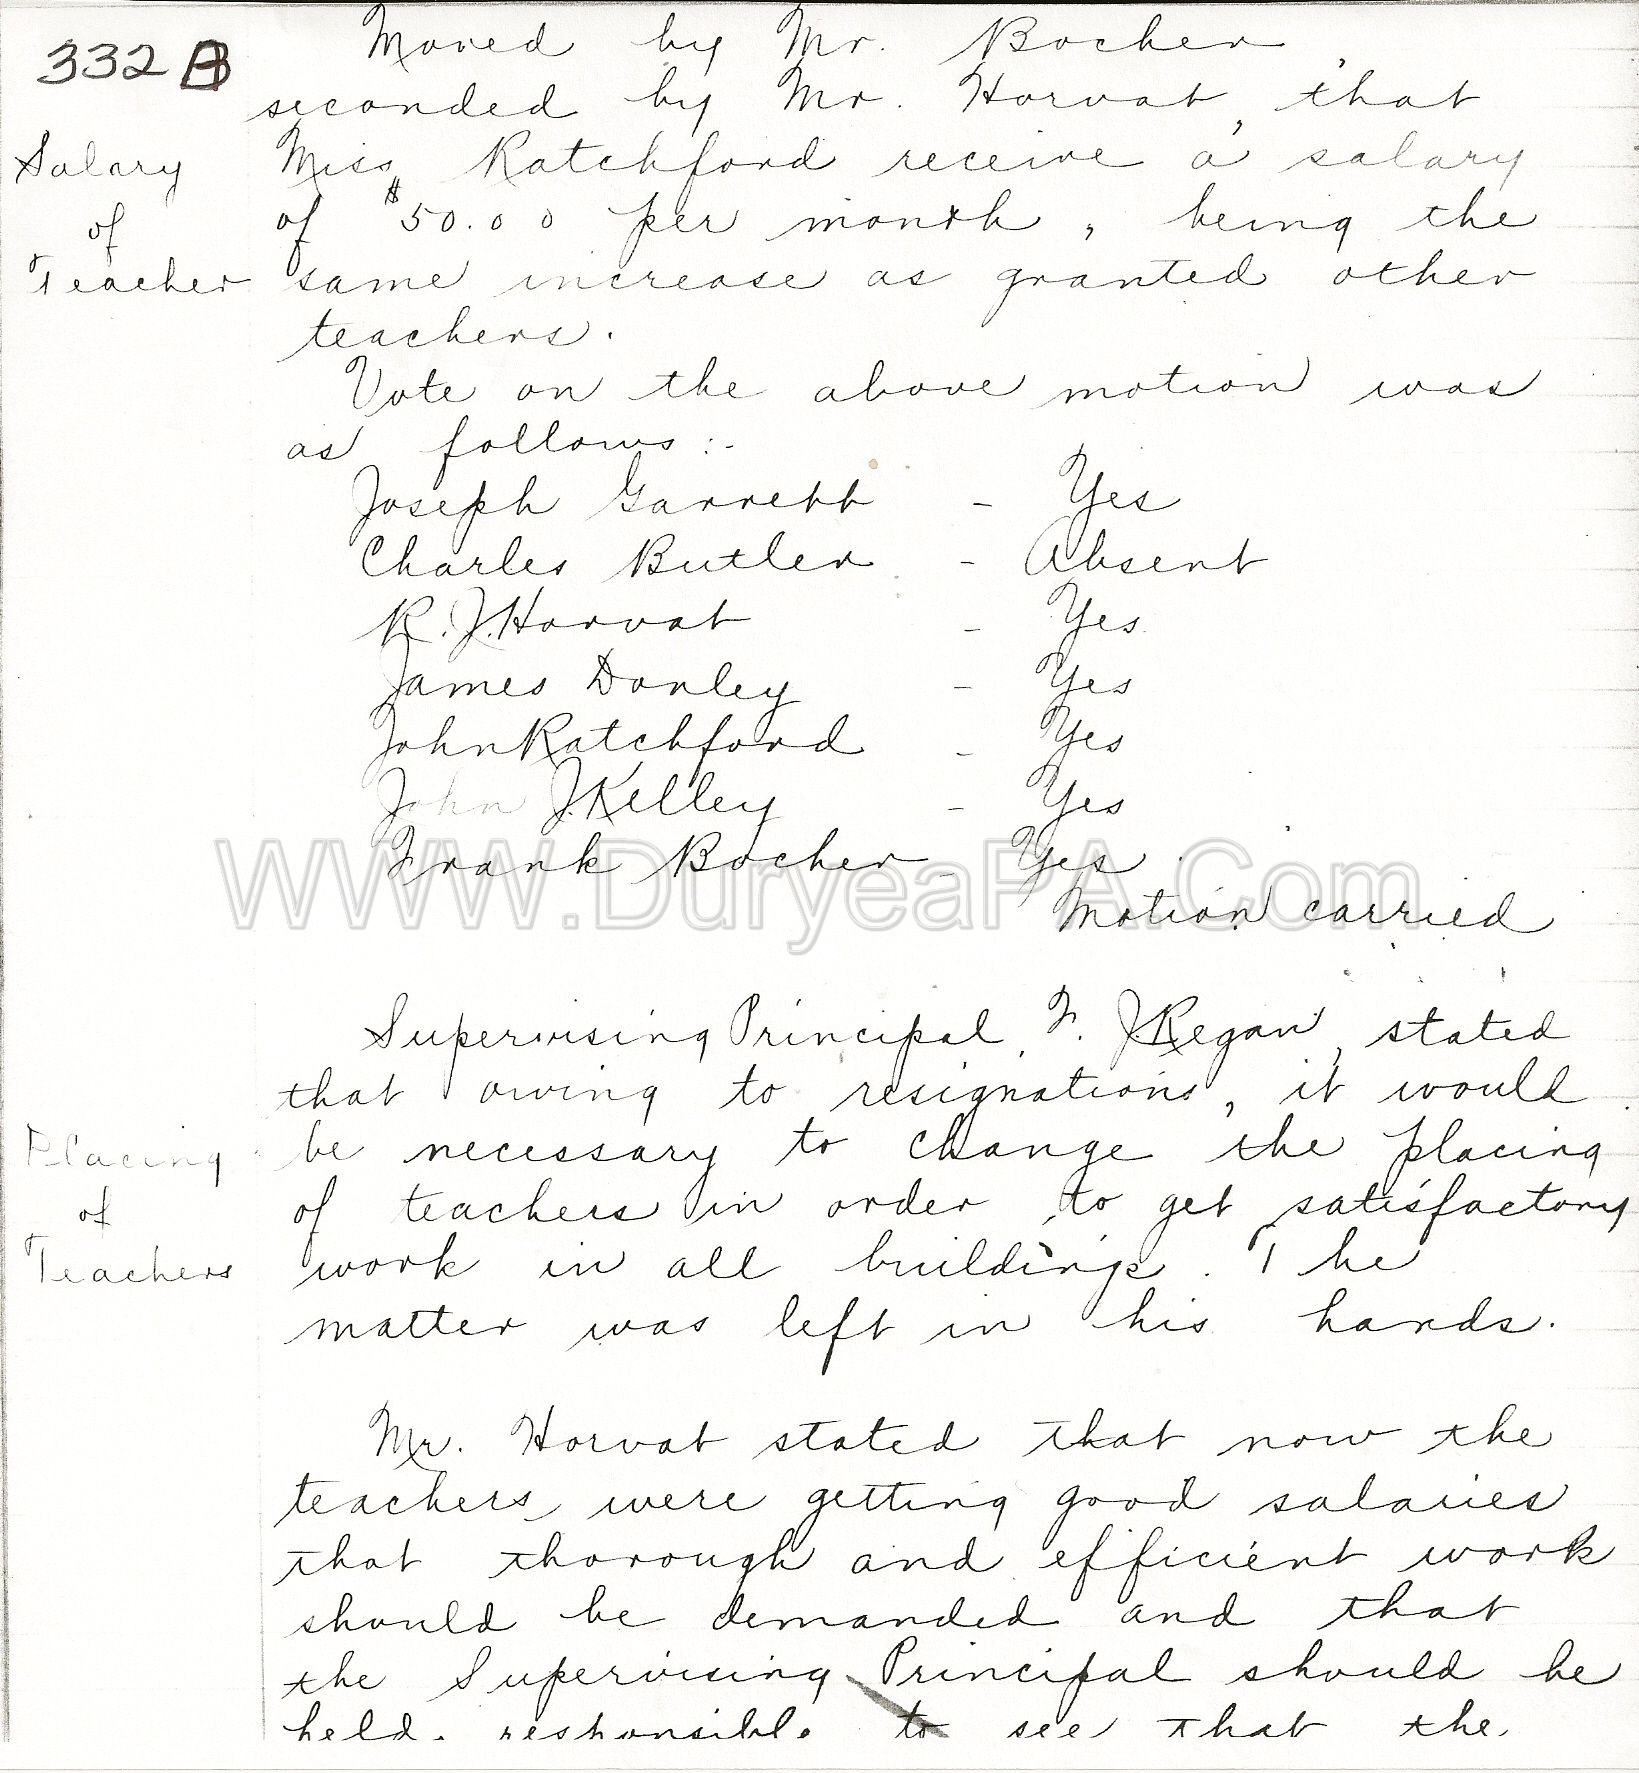 332 B
Moved by Mr. Bocher,
seconded by Mr. Horvat, that
Salary
of
Teacher
Miss Ratchford receive a salary
of $50.00 per month, being the
same increase as granted other
teachers.
Vote on the above motion was
as follows:-
Joseph Garrett - Yes
Charles Butler - Absent
R. J. Horvat - Yes
James Donley - Yes
John Ratchford - Yes
John J. Kelley - Yes
Frank Bocher - Yes
WWW.DuryeaPA.Com
Motion carried
Supervising Principal, F. J. Regan, stated
that owing to resignations, it would
Placing
of
Teachers
be necessary to change the placing
of teachers in order to get satisfactory
work in all buildings. The
matter was left in his hands.
Mr. Horvat stated that now the
teachers were getting good salaries
that thorough and efficient work
should be demanded and that
the Supervising Principal should be
held responsible to see that the